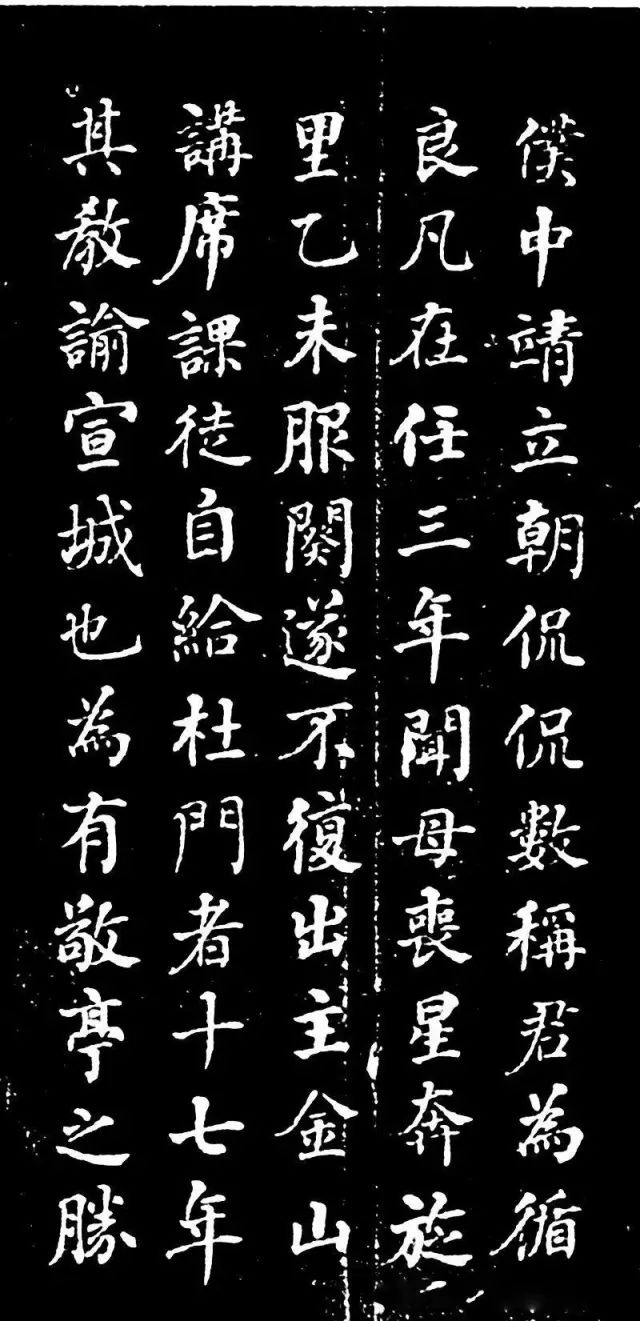 僕申靖立朝侃侃數稱君為循
良凡在任三年聞母喪星奔旋
里乙未服闋遂不復出主金山
講席課徒自給杜門者十七年
其教諭宣城也為有敬亭之勝